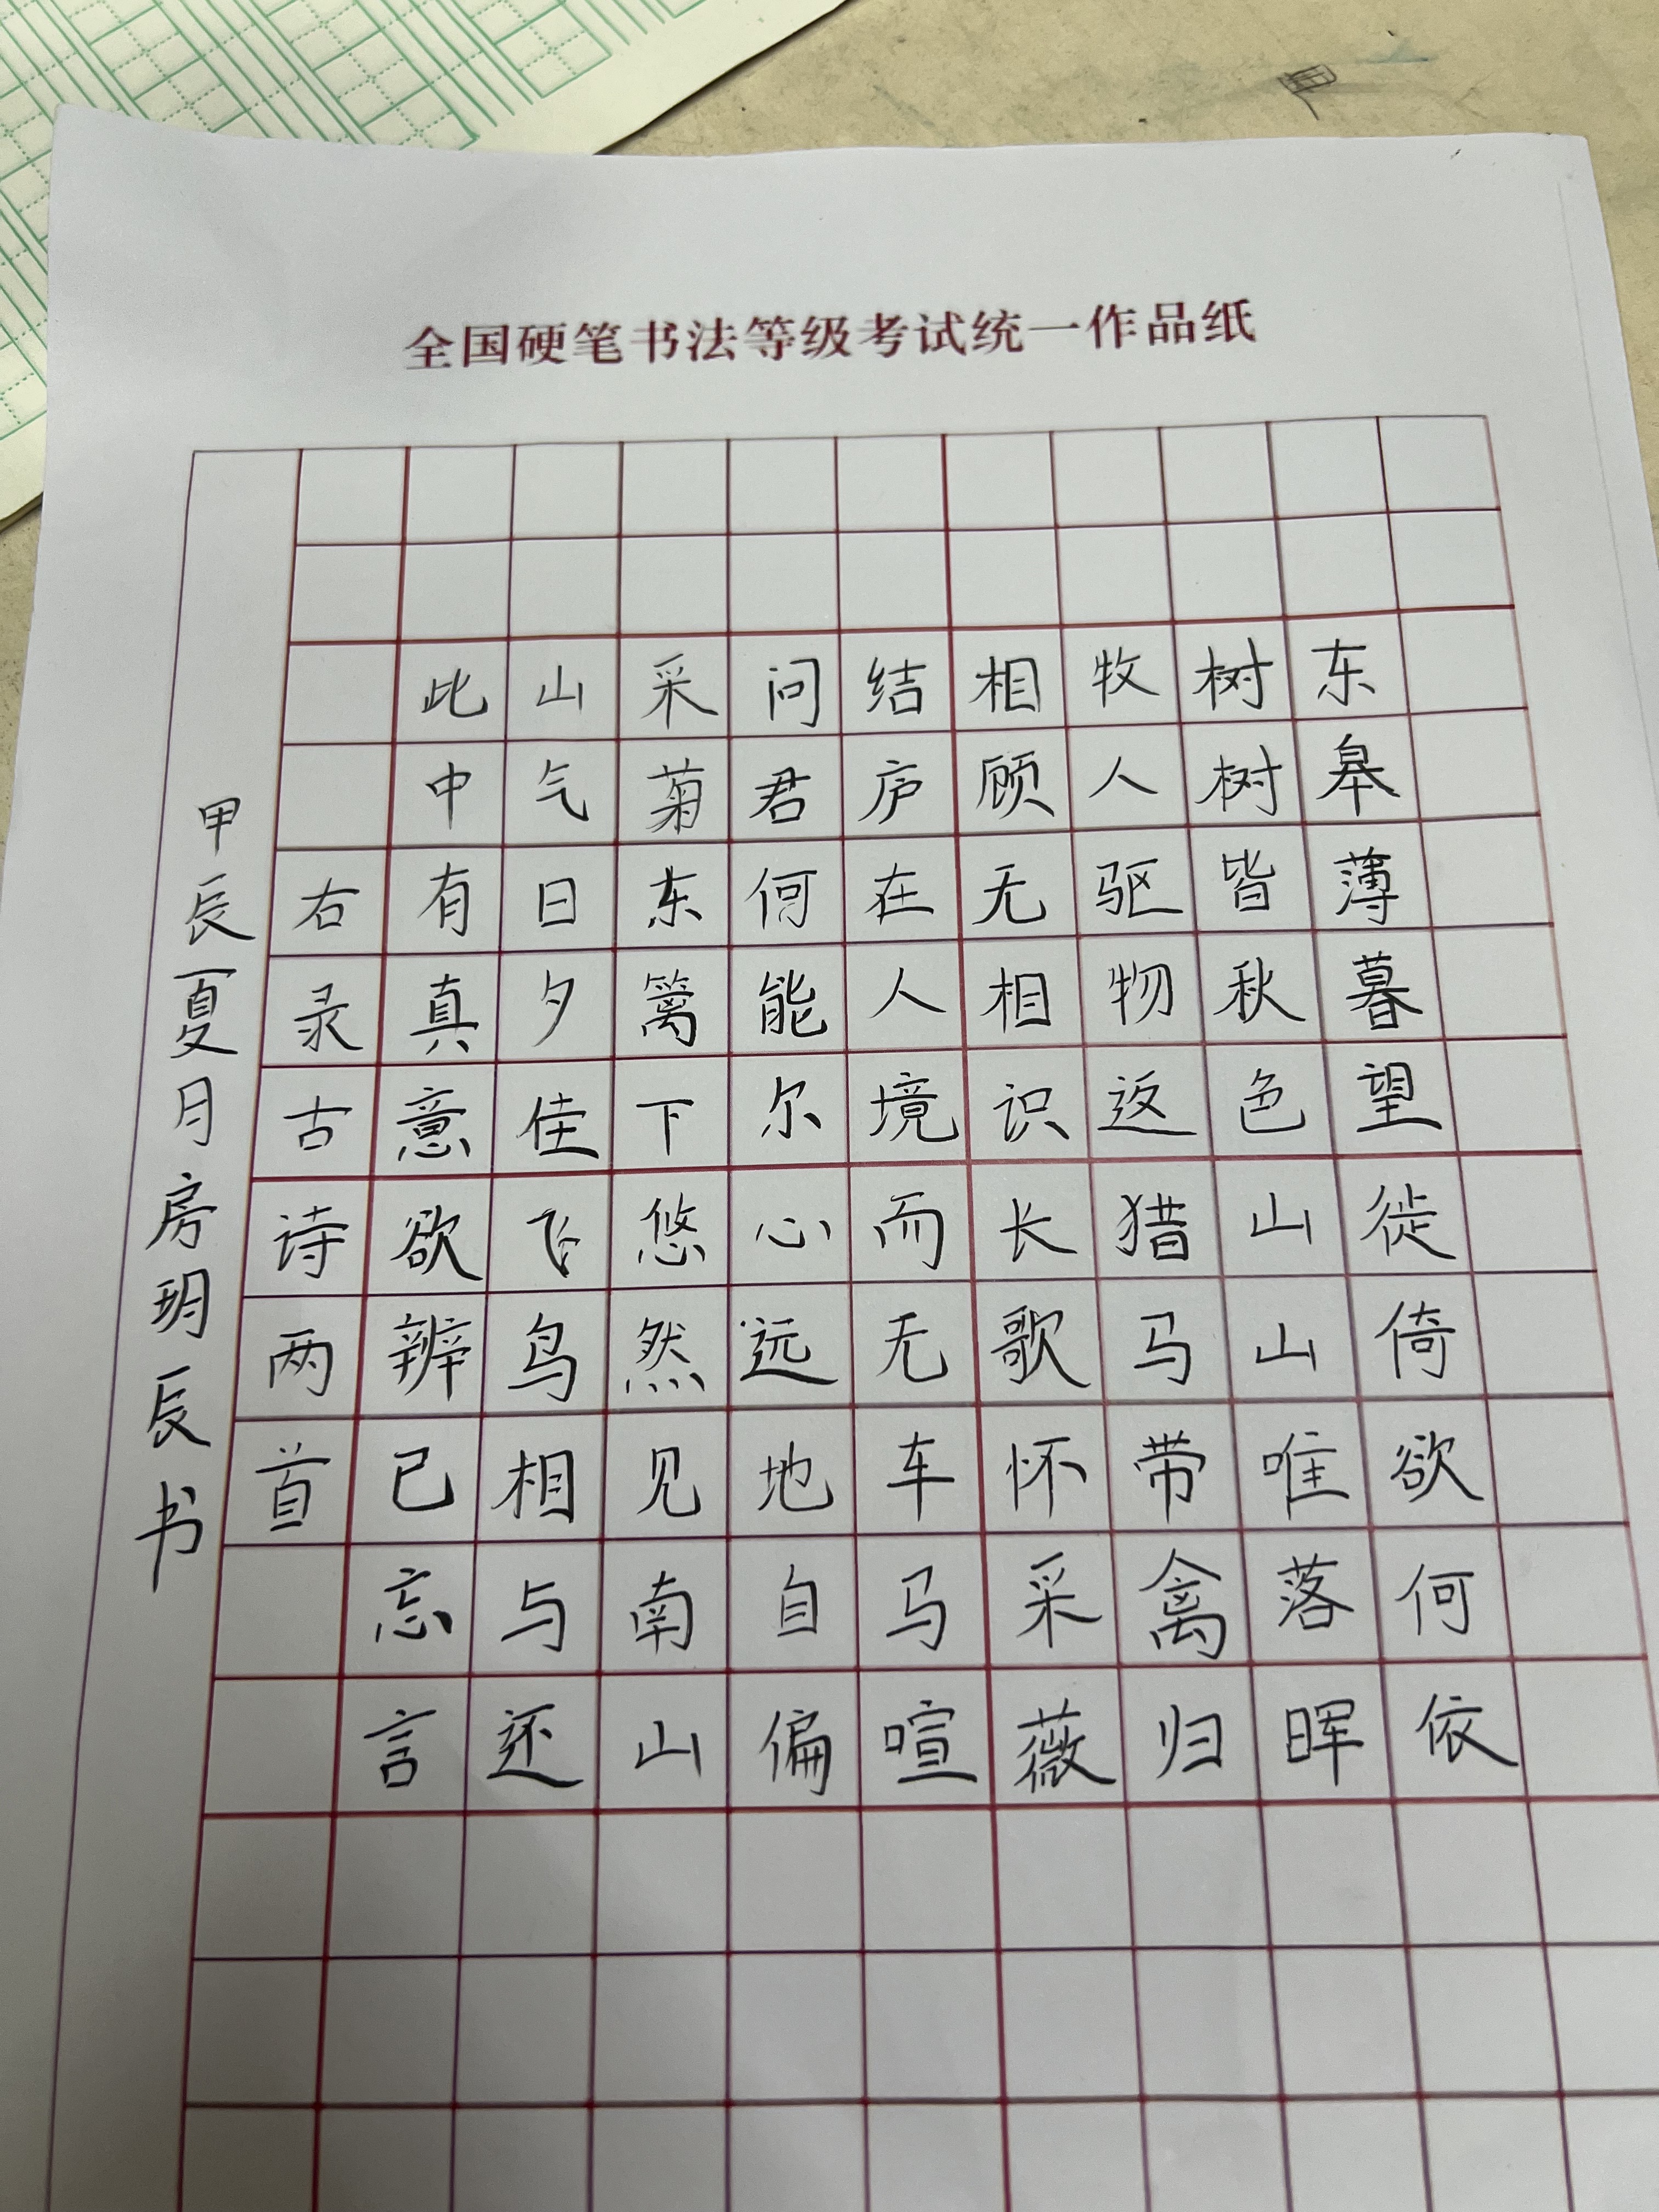 全国硬笔书法等级考试统一作品纸
东皋薄暮望徙倚欲何依
树树皆秋色山山唯落晖
牧人驱物返猎马带禽归
相顾无相识长歌怀采薇
结庐在人境而无车马喧
问君何能尔心远地自偏
采菊东篱下悠然见南山
山气日夕佳飞鸟相与还
此中有真意欲辨已忘言
右录古诗两首
甲辰夏月房玥辰书